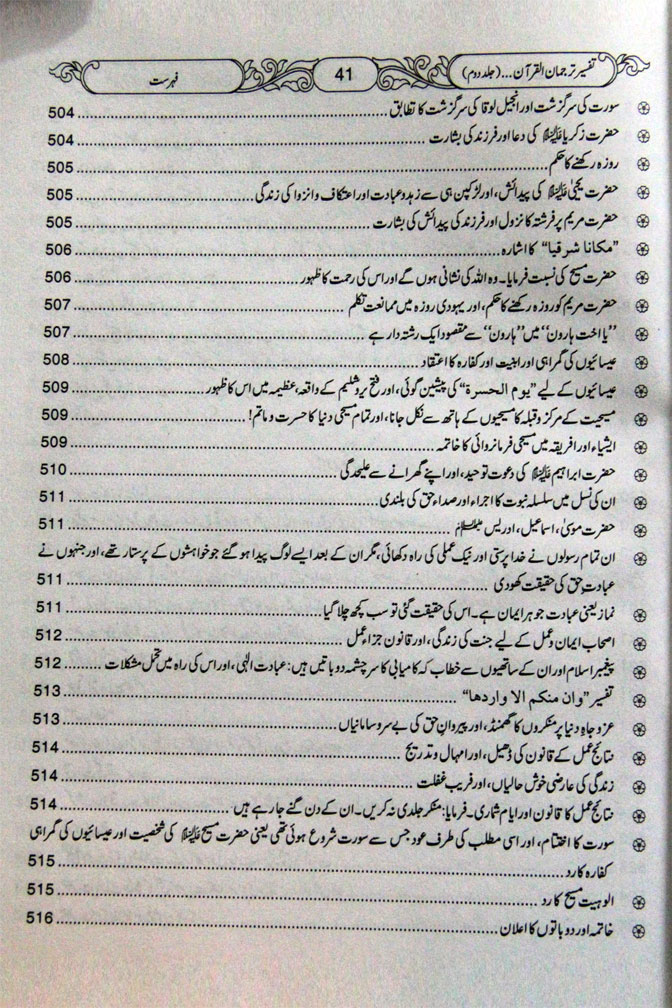 تفسیر ترجمان القرآن... (جلد دوم) 41 فہرست
سورت کی سرگزشت اور انجیل لوقا کی سرگزشت کا تطابق 504
حضرت زکریا علیہ السلام کی دعا اور فرزند کی بشارت 504
روزہ رکھنے کا حکم 505
حضرت یحییٰ علیہ السلام کی پیدائش، اور لڑکپن ہی سے زہد و عبادت اور اعتکاف و انزوا کی زندگی 505
حضرت مریم پر فرشتہ کا نزول اور فرزند کی پیدائش کی بشارت 505
”مکانا شرقیا“ کا اشارہ 506
حضرت مسیح کی نسبت فرمایا۔ وہ اللہ کی نشانی ہوں گے اور اس کی رحمت کا ظہور 506
حضرت مریم کو روزہ رکھنے کا حکم، اور یہودی روزہ میں ممانعت تکلم 507
”یا اخت ہارون“ میں ”ہارون“ سے مقصود ایک رشتہ دار ہے 507
عیسائیوں کی گمراہی اور ابنیت اور کفارہ کا اعتقاد 508
عیسائیوں کے لیے ”یوم الحسرۃ“ کی پیشین گوئی، اور فتح یروشلیم کے واقعہ، عظیمہ میں اس کا ظہور 509
مسیحیت کے مرکز و قبلہ کا مسیحیوں کے ہاتھ سے نکل جانا، اور تمام مسیحی دنیا کا حسرت و ماتم! 509
ایشیاء اور افریقہ میں مسیحی فرمانروائی کا خاتمہ 509
حضرت ابراہیم علیہ السلام کی دعوت توحید، اور اپنے گھرانے سے علیحدگی 510
ان کی نسل میں سلسلہ نبوت کا اجراء اور صداء حق کی بلندی 511
حضرت موسیٰ، اسماعیل، ادریس علیہم السلام 511
ان تمام رسولوں نے خدا پرستی اور نیک عملی کی راہ دکھائی، مگر ان کے بعد ایسے لوگ پیدا ہو گئے جو خواہشوں کے پرستار تھے، اور جنہوں نے
عبادتِ حق کی حقیقت کھو دی 511
نماز یعنی عبادت جوہر ایمان ہے۔ اس کی حقیقت گئی تو سب کچھ چلا گیا 511
اصحاب ایمان و عمل کے لیے جنت کی زندگی، اور قانون جزاء عمل 512
پیغمبر اسلام اور ان کے ساتھیوں سے خطاب کہ کامیابی کا سرچشمہ دو باتیں ہیں: عبادت الٰہی، اور اس کی راہ میں تحمل مشکلات 512
تفسیر ”وان منکم الا واردھا“ 513
عز و جاہِ دنیا پر منکروں کا گھمنڈ، اور پیروانِ حق کی بے سر و سامانیاں 513
نتائج عمل کے قانون کی ڈھیل، اور امہال و تدریج 514
زندگی کی عارضی خوش حالیاں، اور فریب غفلت 514
نتائج عمل کا قانون اور ایام شماری۔ فرمایا: منکر جلدی نہ کریں۔ ان کے دن گنے جا رہے ہیں 514
سورت کا اختتام، اور اسی مطلب کی طرف عود جس سے سورت شروع ہوئی تھی یعنی حضرت مسیح علیہ السلام کی شخصیت اور عیسائیوں کی گمراہی
کفارہ کا رد 515
الوہیت مسیح کا رد 515
خاتمہ اور دو باتوں کا اعلان 516